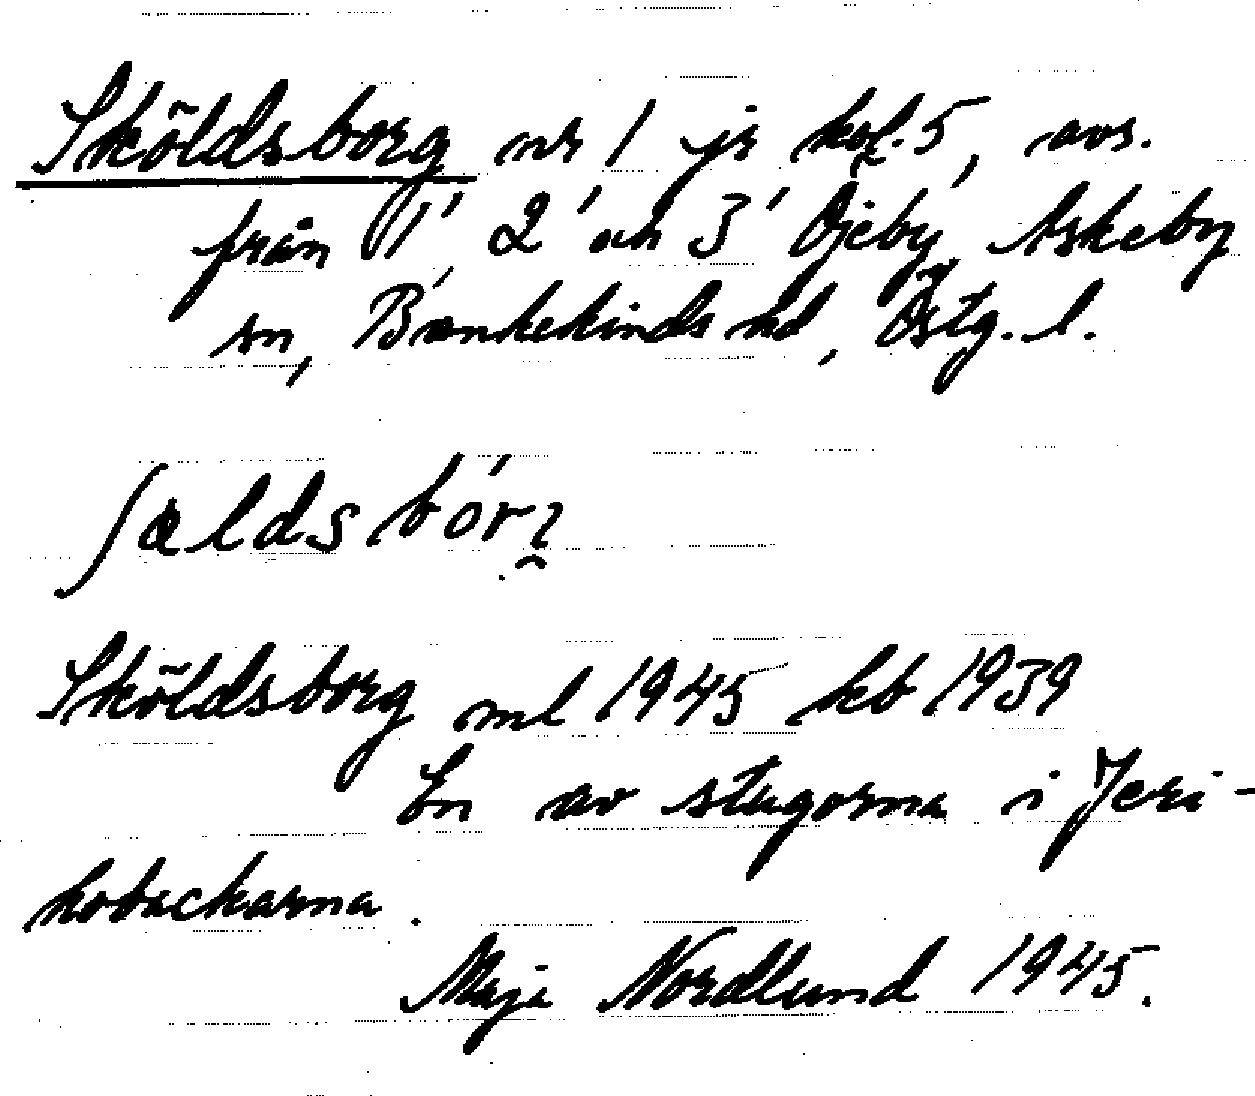 Sköldsborg nr 1 jr kol. 5, avs.
från 1¹ 2¹ och 3¹ Öjeby, Askeby
sn, Bankekinds hd, Östg. l.
Sköldsborg ml 1945 kb 1939
En av stugorna i Jeri-
kobackarna.
Maja Nordlund 1945.